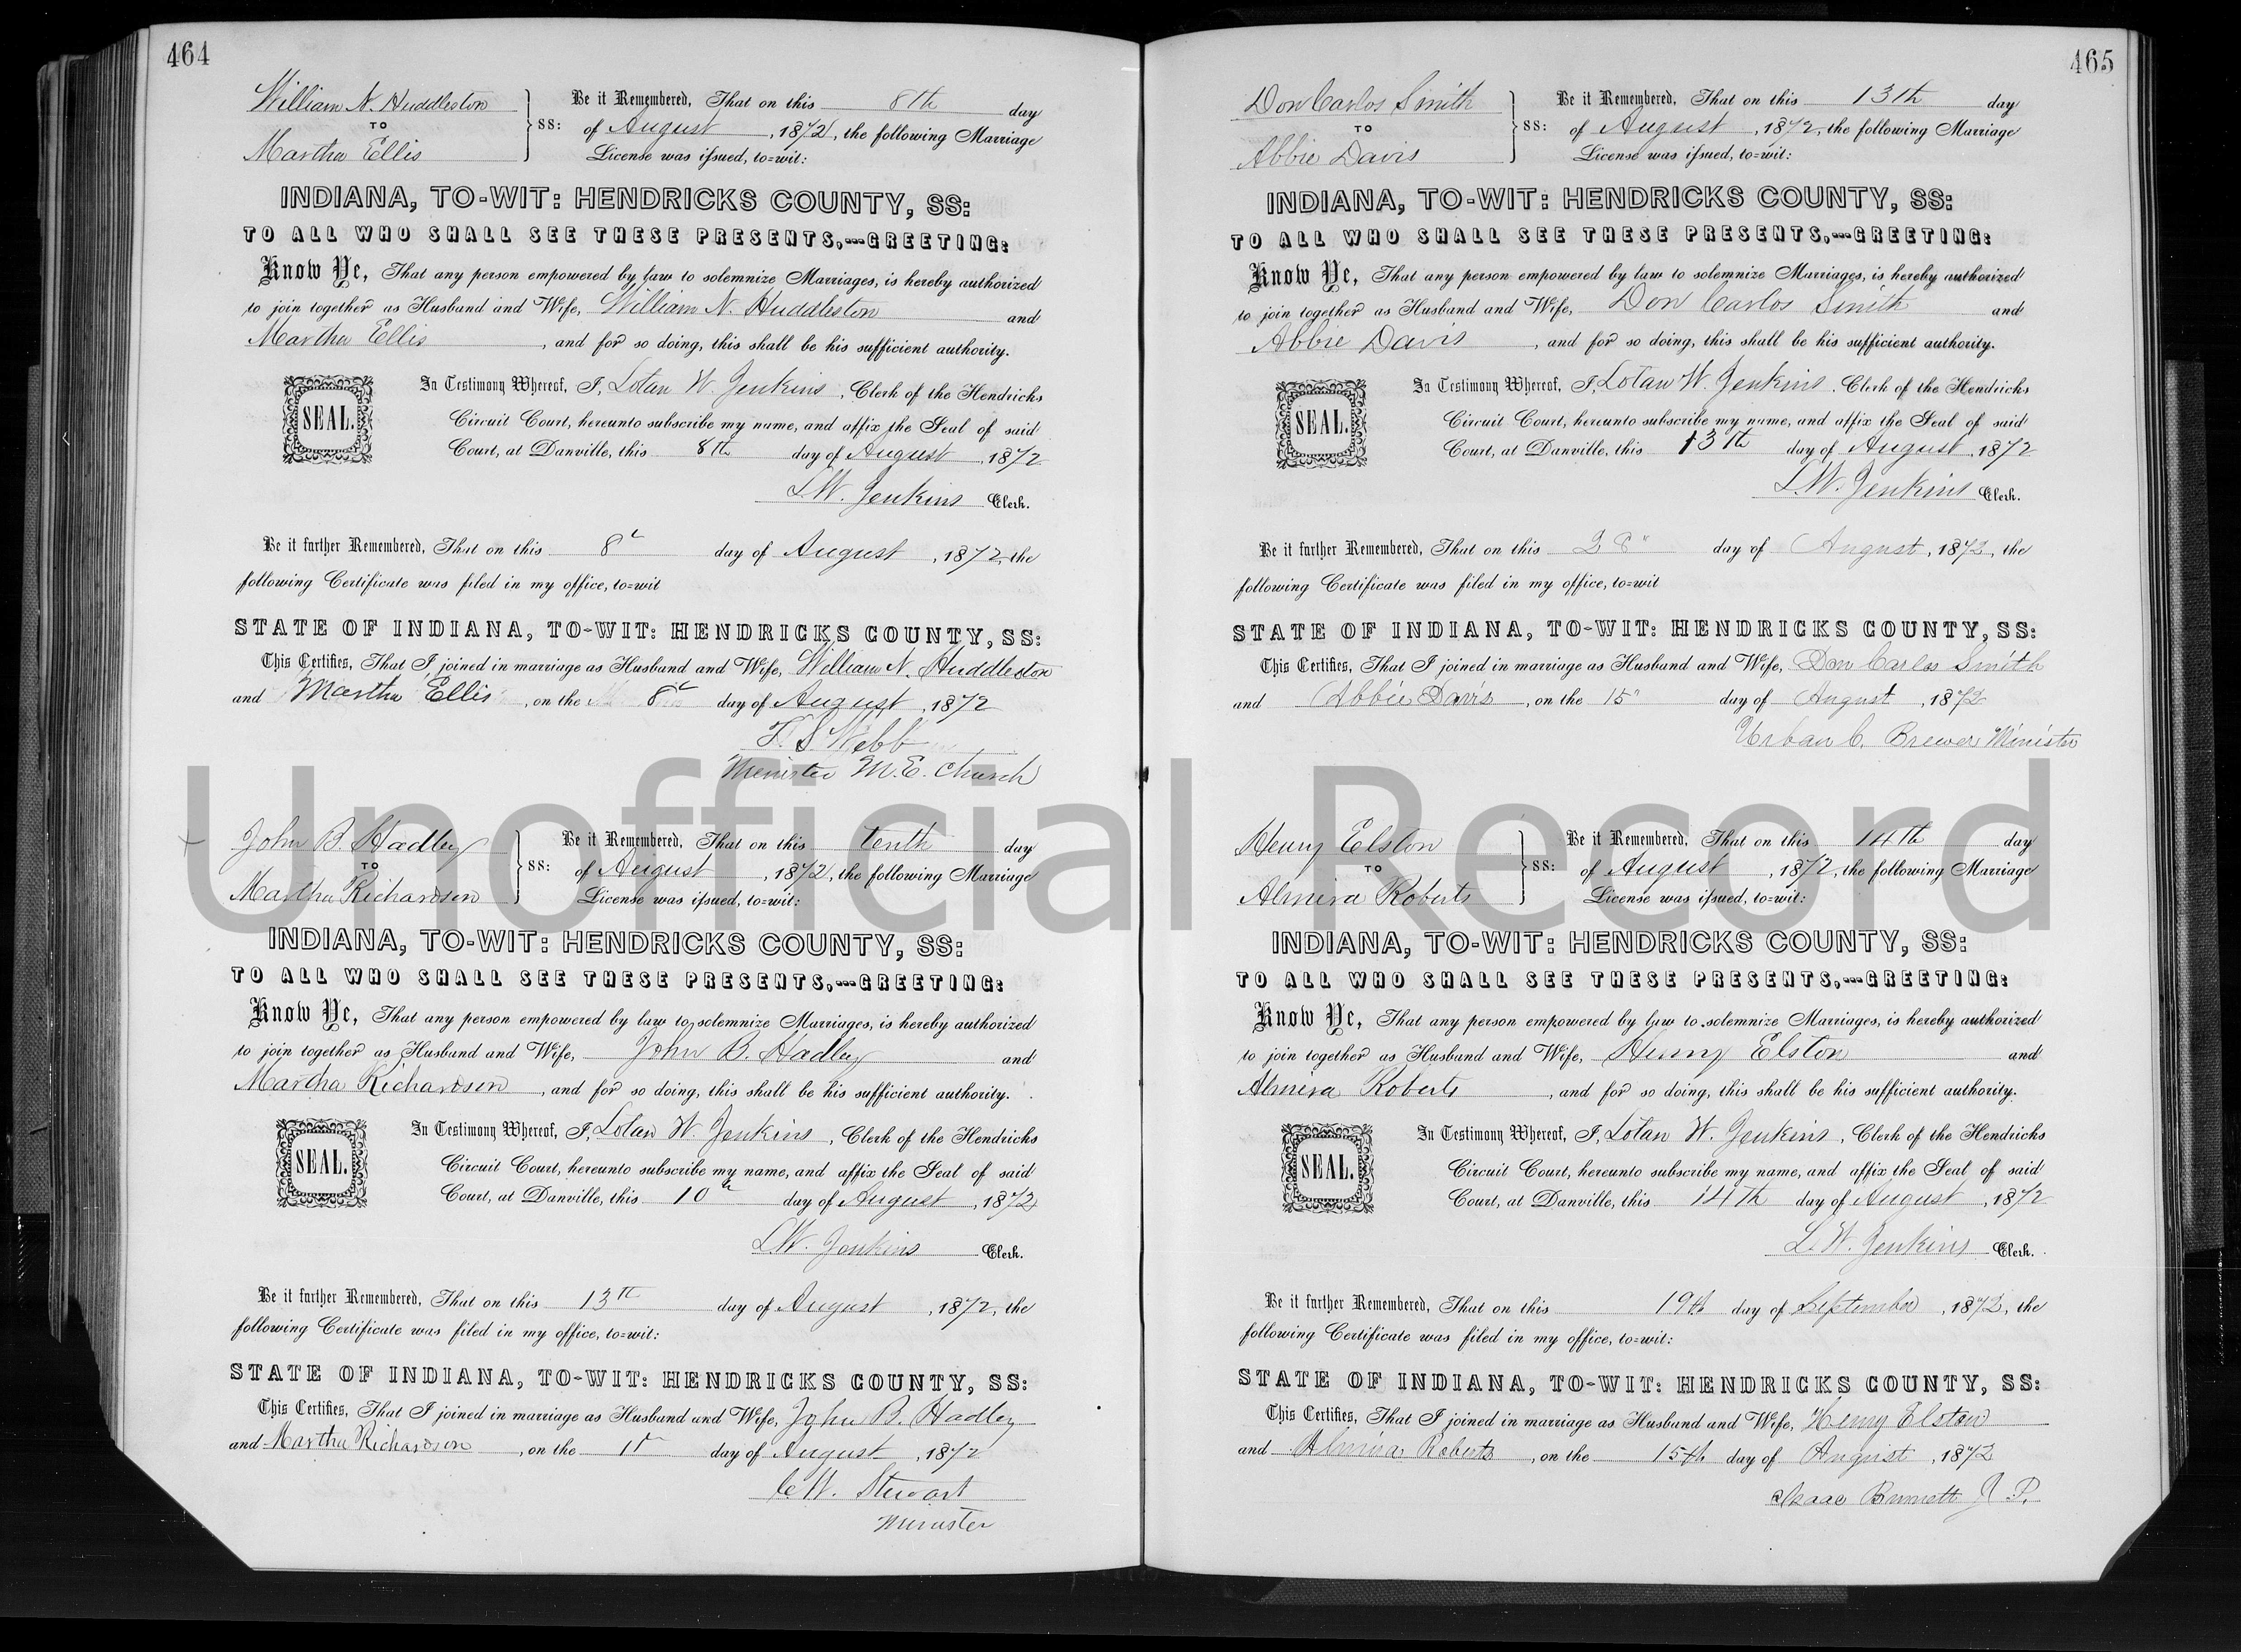 464
William N. Huddleston
TO
Martha Ellis
SS:
Be it Remembered, That on this 8th day
of August, 1872, the following Marriage
License was issued, to=wit:
INDIANA, TO-WIT: HENDRICKS COUNTY, SS:
TO ALL WHO SHALL SEE THESE PRESENTS,---GREETING:
Know Ye, That any person empowered by law to solemnize Marriages, is hereby authorized
to join together as Husband and Wife, William N. Huddleston and
Martha Ellis, and for so doing, this shall be his sufficient authority.
SEAL.
In Testimony Whereof, I, Lotan W. Jenkins, Clerk of the Hendricks
Circuit Court, hereunto subscribe my name, and affix the Seal of said
Court, at Danville, this 8th day of August, 1872
L.W. Jenkins Clerk.
Be it farther Remembered, That on this 8" day of August, 1872, the
following Certificate was filed in my office, to=wit
STATE OF INDIANA, TO-WIT: HENDRICKS COUNTY, SS:
This Certifies, That I joined in marriage as Husband and Wife, William N. Huddleston
and Martha Ellis, on the 8" day of August, 1872
F. S. Webb
Minister M.E. Church
John B. Hadley
TO
Martha Richardson
SS:
Be it Remembered, That on this tenth day
of August, 1872, the following Marriage
License was issued, to=wit:
INDIANA, TO-WIT: HENDRICKS COUNTY, SS:
TO ALL WHO SHALL SEE THESE PRESENTS,---GREETING:
Know Ye, That any person empowered by law to solemnize Marriages, is hereby authorized
to join together as Husband and Wife, John B. Hadley and
Martha Richardson, and for so doing, this shall be his sufficient authority.
SEAL.
In Testimony Whereof, I, Lotan W. Jenkins, Clerk of the Hendricks
Circuit Court, hereunto subscribe my name, and affix the Seal of said
Court, at Danville, this 10th day of August, 1872
L.W. Jenkins Clerk.
Be it farther Remembered, That on this 13th day of August, 1872, the
following Certificate was filed in my office, to=wit:
STATE OF INDIANA, TO-WIT: HENDRICKS COUNTY, SS:
This Certifies, That I joined in marriage as Husband and Wife, John B. Hadley
and Martha Richardson, on the day of August, 1872
C.W. Stewart
Minister
465
Don Carlos Smith
TO
Abbie Davis
SS:
Be it Remembered, That on this 13th day
of August, 1872, the following Marriage
License was issued, to=wit:
INDIANA, TO-WIT: HENDRICKS COUNTY, SS:
TO ALL WHO SHALL SEE THESE PRESENTS,---GREETING:
Know Ye, That any person empowered by law to solemnize Marriages, is hereby authorized
to join together as Husband and Wife, Don Carlos Smith and
Abbie Davis, and for so doing, this shall be his sufficient authority.
SEAL.
In Testimony Whereof, I, Lotan W. Jenkins, Clerk of the Hendricks
Circuit Court, hereunto subscribe my name, and affix the Seal of said
Court, at Danville, this 13th day of August, 1872
L.W. Jenkins Clerk.
Be it farther Remembered, That on this 28" day of August, 1872, the
following Certificate was filed in my office, to=wit
STATE OF INDIANA, TO-WIT: HENDRICKS COUNTY, SS:
This Certifies, That I joined in marriage as Husband and Wife, Don Carlos Smith
and Abbie Davis, on the 15" day of August, 1872
Urban C. Brewer Minister
Henry Elston
TO
Almira Roberts
SS:
Be it Remembered, That on this 14th day
of August, 1872, the following Marriage
License was issued, to=wit:
INDIANA, TO-WIT: HENDRICKS COUNTY, SS:
TO ALL WHO SHALL SEE THESE PRESENTS,---GREETING:
Know Ye, That any person empowered by law to solemnize Marriages, is hereby authorized
to join together as Husband and Wife, Henry Elston and
Almira Roberts, and for so doing, this shall be his sufficient authority.
SEAL.
In Testimony Whereof, I, Lotan W. Jenkins, Clerk of the Hendricks
Circuit Court, hereunto subscribe my name, and affix the Seal of said
Court, at Danville, this 14th day of August, 1872
L.W. Jenkins Clerk.
Be it farther Remembered, That on this 19th day of September, 1872, the
following Certificate was filed in my office, to=wit:
STATE OF INDIANA, TO-WIT: HENDRICKS COUNTY, SS:
This Certifies, That I joined in marriage as Husband and Wife, Henry Elston
and Almira Roberts, on the 15th day of August, 1872
Isaac Burnett J. P.
Unofficial Record